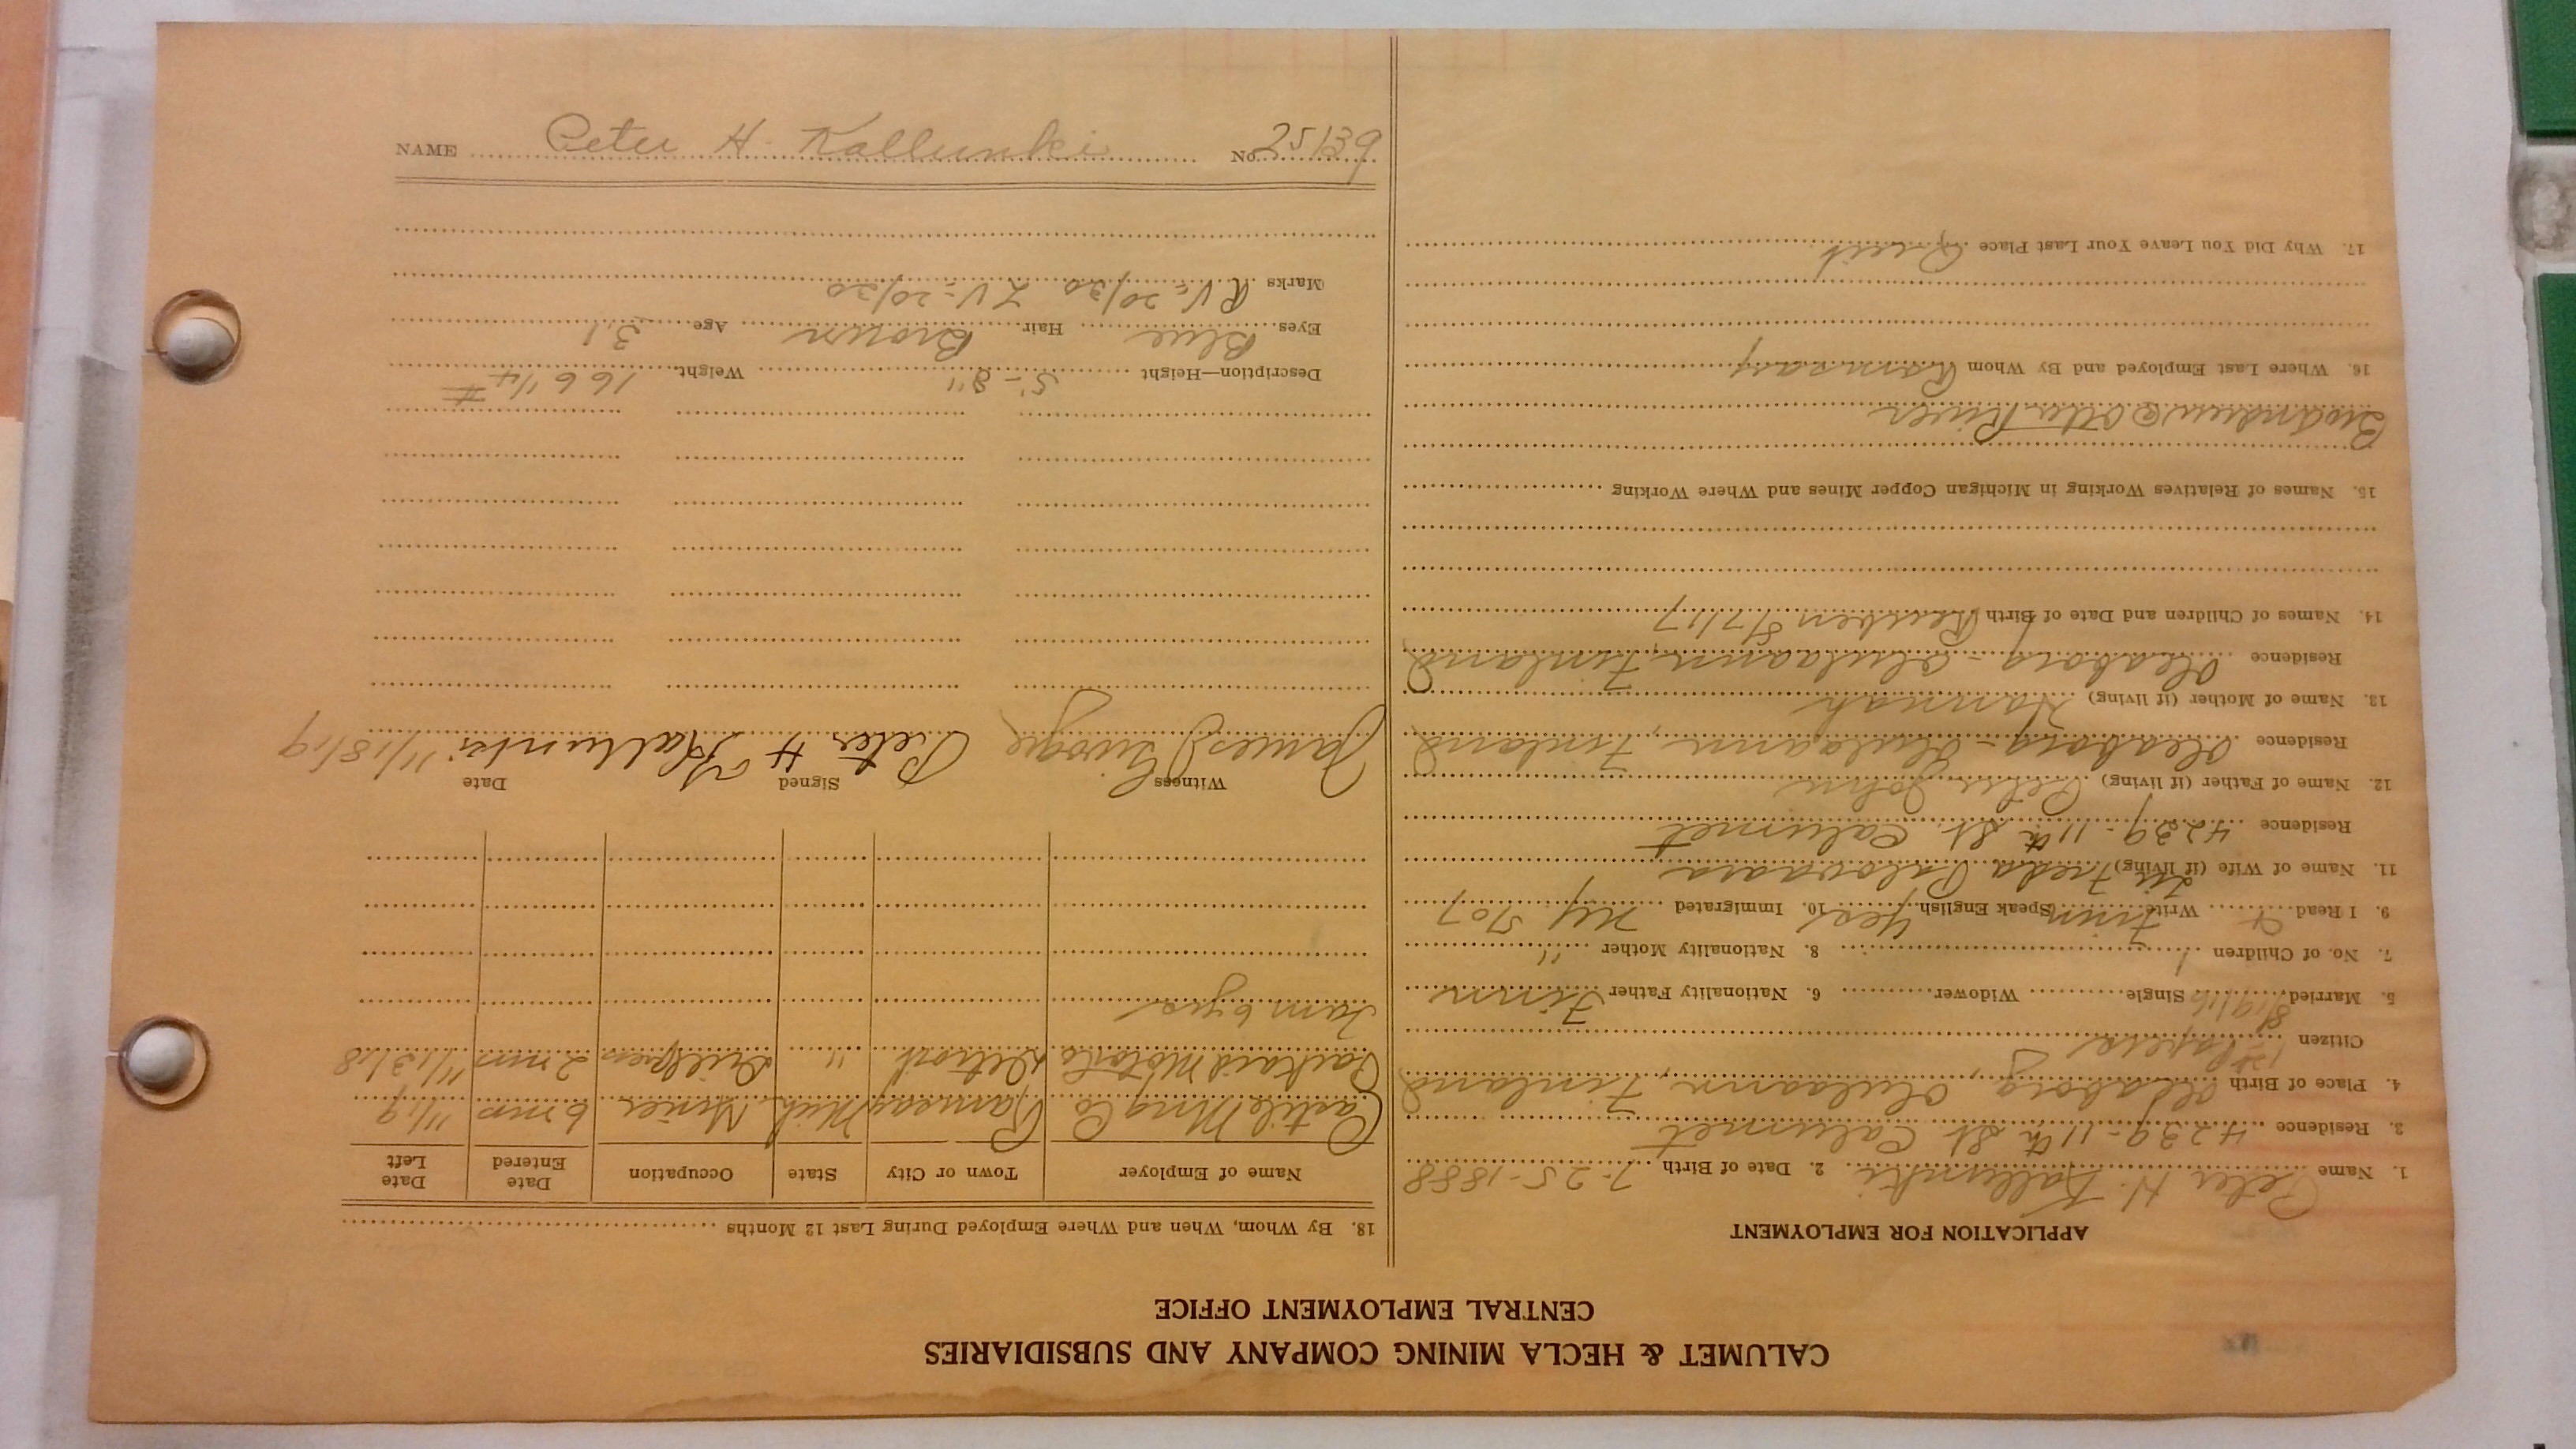 CALUMET & HECLA MINING COMPANY AND SUBSIDIARIES
CENTRAL EMPLOYMENT OFFICE
APPLICATION FOR EMPLOYMENT
1. Name Peter H. Kallunki 2. Date of Birth 7-25-1888
3. Residence 4239-11th St. Calumet
4. Place of Birth Uleaborg, Oulaann, Finland
Citizen 1st papers
5. Married 8/19/16 Single Widower 6. Nationality Father Finn
7. No. of Children 1 8. Nationality Mother "
9. I Read & Write Finn Speak English Yes 10. Immigrated NY 507
11. Name of Wife (if living) Freda Palovaara
Residence 4239-11th St. Calumet
12. Name of Father (if living) Peter John
Residence Uleaborg-Oulaann, Finland
13. Name of Mother (if living) Hannah
Residence Uleaborg-Oulaann, Finland
14. Names of Children and Date of Birth Reuben 8/7/17
15. Names of Relatives Working in Michigan Copper Mines and Where Working
Bro Andrew @ Otter River
16. Where Last Employed and By Whom Ramsay
17. Why Did You Leave Your Last Place Quit
18. By Whom, When and Where Employed During Last 12 Months
Name of Employer Town or City State Occupation Date Entered Date Left
Castile Mng Co Ramsay Mich Miner 6 mos 11/19
Packard Motor Co Detroit " Drill Press 2 mos 11/13/18
Tam 6 yrs
Witness Signed Date
James Peter H Kallunki 11/18/19
Description—Height 5'-8" Weight 166 1/4 #
Eyes Blue Hair Brown Age 31
Marks RV=20/30 LV=20/20
NAME Peter H. Kallunki No. 25139